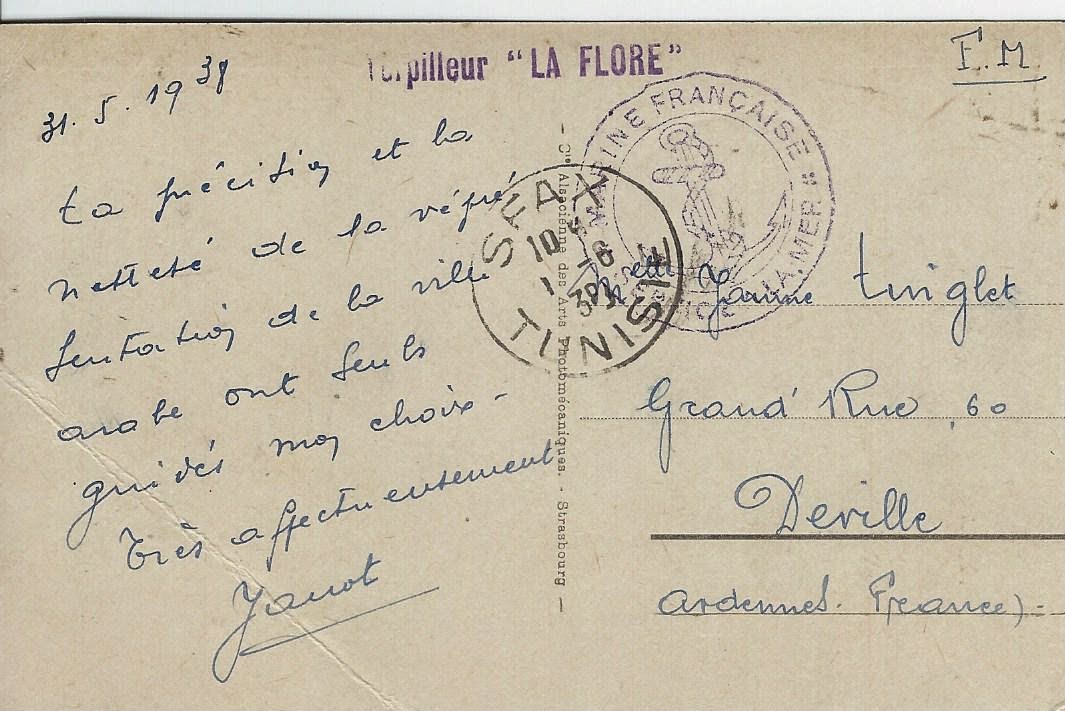 31. 5. 19 38
Torpilleur "LA FLORE"
F.M
MARINE FRANÇAISE
LA MER "
SFAX
10
1 - 6
38
TUNISIE
La précision et la
netteté de la répré
sentation de la ville
arabe ont seuls
guidés mon choix -
Très affectueusement
Janot
- Cie Alsacienne des Arts Photomécaniques. - Strasbourg -
Melle Jeanne Tinglet
Grand' Rue 60
Deville
Ardennes. France) -